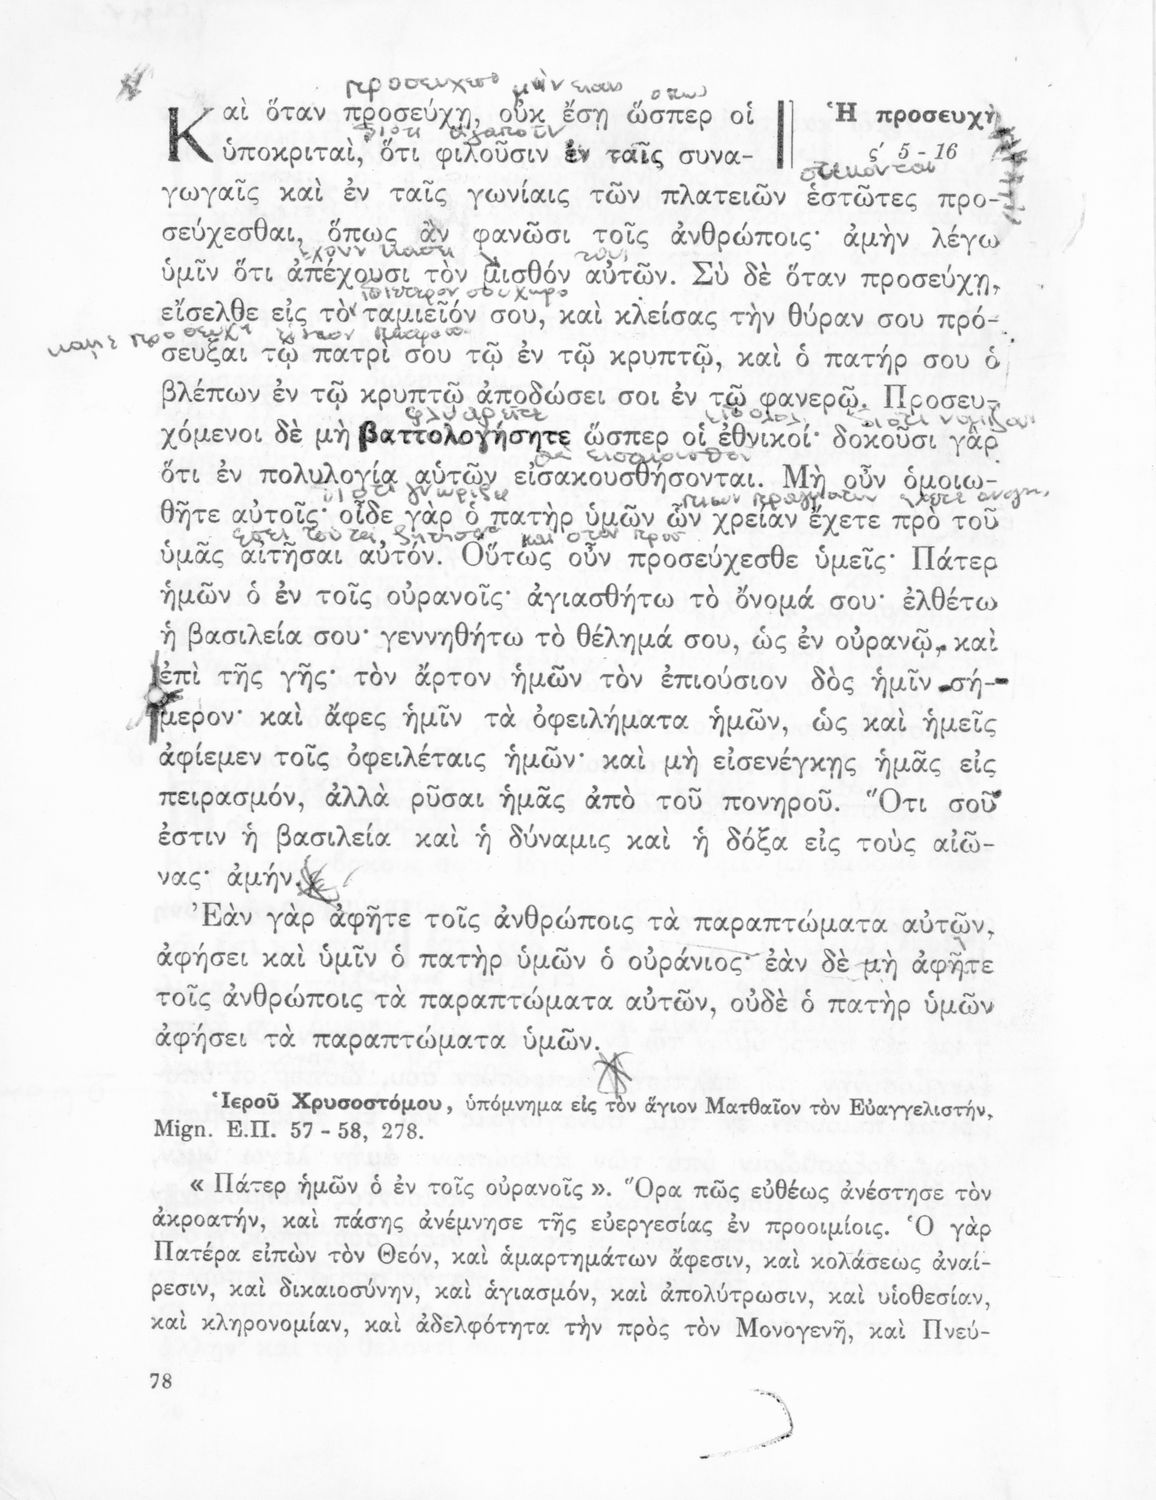 προσεύχεσαι μὴν εἶσαι ὅπως
Καὶ ὅταν προσεύχῃ, οὐκ ἔσῃ ὥσπερ οἱ
Ἡ προσευχὴ
διότι ἀγαποῦν
ὑποκριταί, ὅτι φιλοῦσιν ἐν ταῖς συνα-
ς′ 5 - 16
στέκονται
γωγαῖς καὶ ἐν ταῖς γωνίαις τῶν πλατειῶν ἑστῶτες προ-
σεύχεσθαι, ὅπως ἂν φανῶσι τοῖς ἀνθρώποις· ἀμὴν λέγω
ὑμῖν ὅτι ἀπέχουσι τὸν μισθόν αὐτῶν. Σὺ δὲ ὅταν προσεύχῃ,
εἴσελθε εἰς τὸ ταμιεῖόν σου, καὶ κλείσας τὴν θύραν σου πρό-
σευξαι τῷ πατρί σου τῷ ἐν τῷ κρυπτῷ, καὶ ὁ πατήρ σου ὁ
βλέπων ἐν τῷ κρυπτῷ ἀποδώσει σοι ἐν τῷ φανερῷ. Προσευ-
φλυαρεῖτε
χόμενοι δὲ μὴ βαττολογήσητε ὥσπερ οἱ ἐθνικοί· δοκοῦσι γὰρ
ὅτι ἐν πολυλογίᾳ αὑτῶν εἰσακουσθήσονται. Μὴ οὖν ὁμοιω-
διότι γνωρίζει
θῆτε αὐτοῖς· οἶδε γὰρ ὁ πατὴρ ὑμῶν ὧν χρείαν ἔχετε πρὸ τοῦ
ὑμᾶς αἰτῆσαι αὐτόν. Οὕτως οὖν προσεύχεσθε ὑμεῖς· Πάτερ
ἡμῶν ὁ ἐν τοῖς οὐρανοῖς· ἁγιασθήτω τὸ ὄνομά σου· ἐλθέτω
ἡ βασιλεία σου· γεννηθήτω τὸ θέλημά σου, ὡς ἐν οὐρανῷ, καὶ
ἐπὶ τῆς γῆς· τὸν ἄρτον ἡμῶν τὸν ἐπιούσιον δὸς ἡμῖν σή-
μερον· καὶ ἄφες ἡμῖν τὰ ὀφειλήματα ἡμῶν, ὡς καὶ ἡμεῖς
ἀφίεμεν τοῖς ὀφειλέταις ἡμῶν· καὶ μὴ εἰσενέγκῃς ἡμᾶς εἰς
πειρασμόν, ἀλλὰ ρῦσαι ἡμᾶς ἀπὸ τοῦ πονηροῦ. Ὅτι σοῦ
ἐστιν ἡ βασιλεία καὶ ἡ δύναμις καὶ ἡ δόξα εἰς τοὺς αἰῶ-
νας· ἀμήν.
Ἐὰν γὰρ ἀφῆτε τοῖς ἀνθρώποις τὰ παραπτώματα αὐτῶν,
ἀφήσει καὶ ὑμῖν ὁ πατὴρ ὑμῶν ὁ οὐράνιος· ἐὰν δὲ μὴ ἀφῆτε
τοῖς ἀνθρώποις τὰ παραπτώματα αὐτῶν, οὐδὲ ὁ πατὴρ ὑμῶν
ἀφήσει τὰ παραπτώματα ὑμῶν.
Ἱεροῦ Χρυσοστόμου, ὑπόμνημα εἰς τὸν ἅγιον Ματθαῖον τὸν Εὐαγγελιστήν,
Mign. Ε.Π. 57 - 58, 278.
« Πάτερ ἡμῶν ὁ ἐν τοῖς οὐρανοῖς ». Ὅρα πῶς εὐθέως ἀνέστησε τὸν
ἀκροατήν, καὶ πάσης ἀνέμνησε τῆς εὐεργεσίας ἐν προοιμίοις. Ὁ γὰρ
Πατέρα εἰπὼν τὸν Θεόν, καὶ ἁμαρτημάτων ἄφεσιν, καὶ κολάσεως ἀναί-
ρεσιν, καὶ δικαιοσύνην, καὶ ἁγιασμόν, καὶ ἀπολύτρωσιν, καὶ υἱοθεσίαν,
καὶ κληρονομίαν, καὶ ἀδελφότητα τὴν πρὸς τὸν Μονογενῆ, καὶ Πνεύ-
78